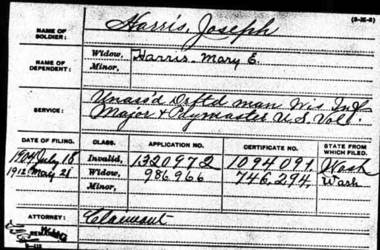 (3-26-8)
NAME OF SOLDIER: Harris, Joseph
NAME OF DEPENDENT: Widow, Harris Mary E.
Minor,
SERVICE: Unass'd Drft'd man Wis Inf
Major & Paymaster U.S. Voll.
DATE OF FILING. CLASS. APPLICATION NO. CERTIFICATE NO. STATE FROM WHICH FILED.
1904 July 18 Invalid, 1320972 1094091 Wash
1912 May 21 Widow, 986966 746,294, Wash
Minor,
ATTORNEY: Claimant